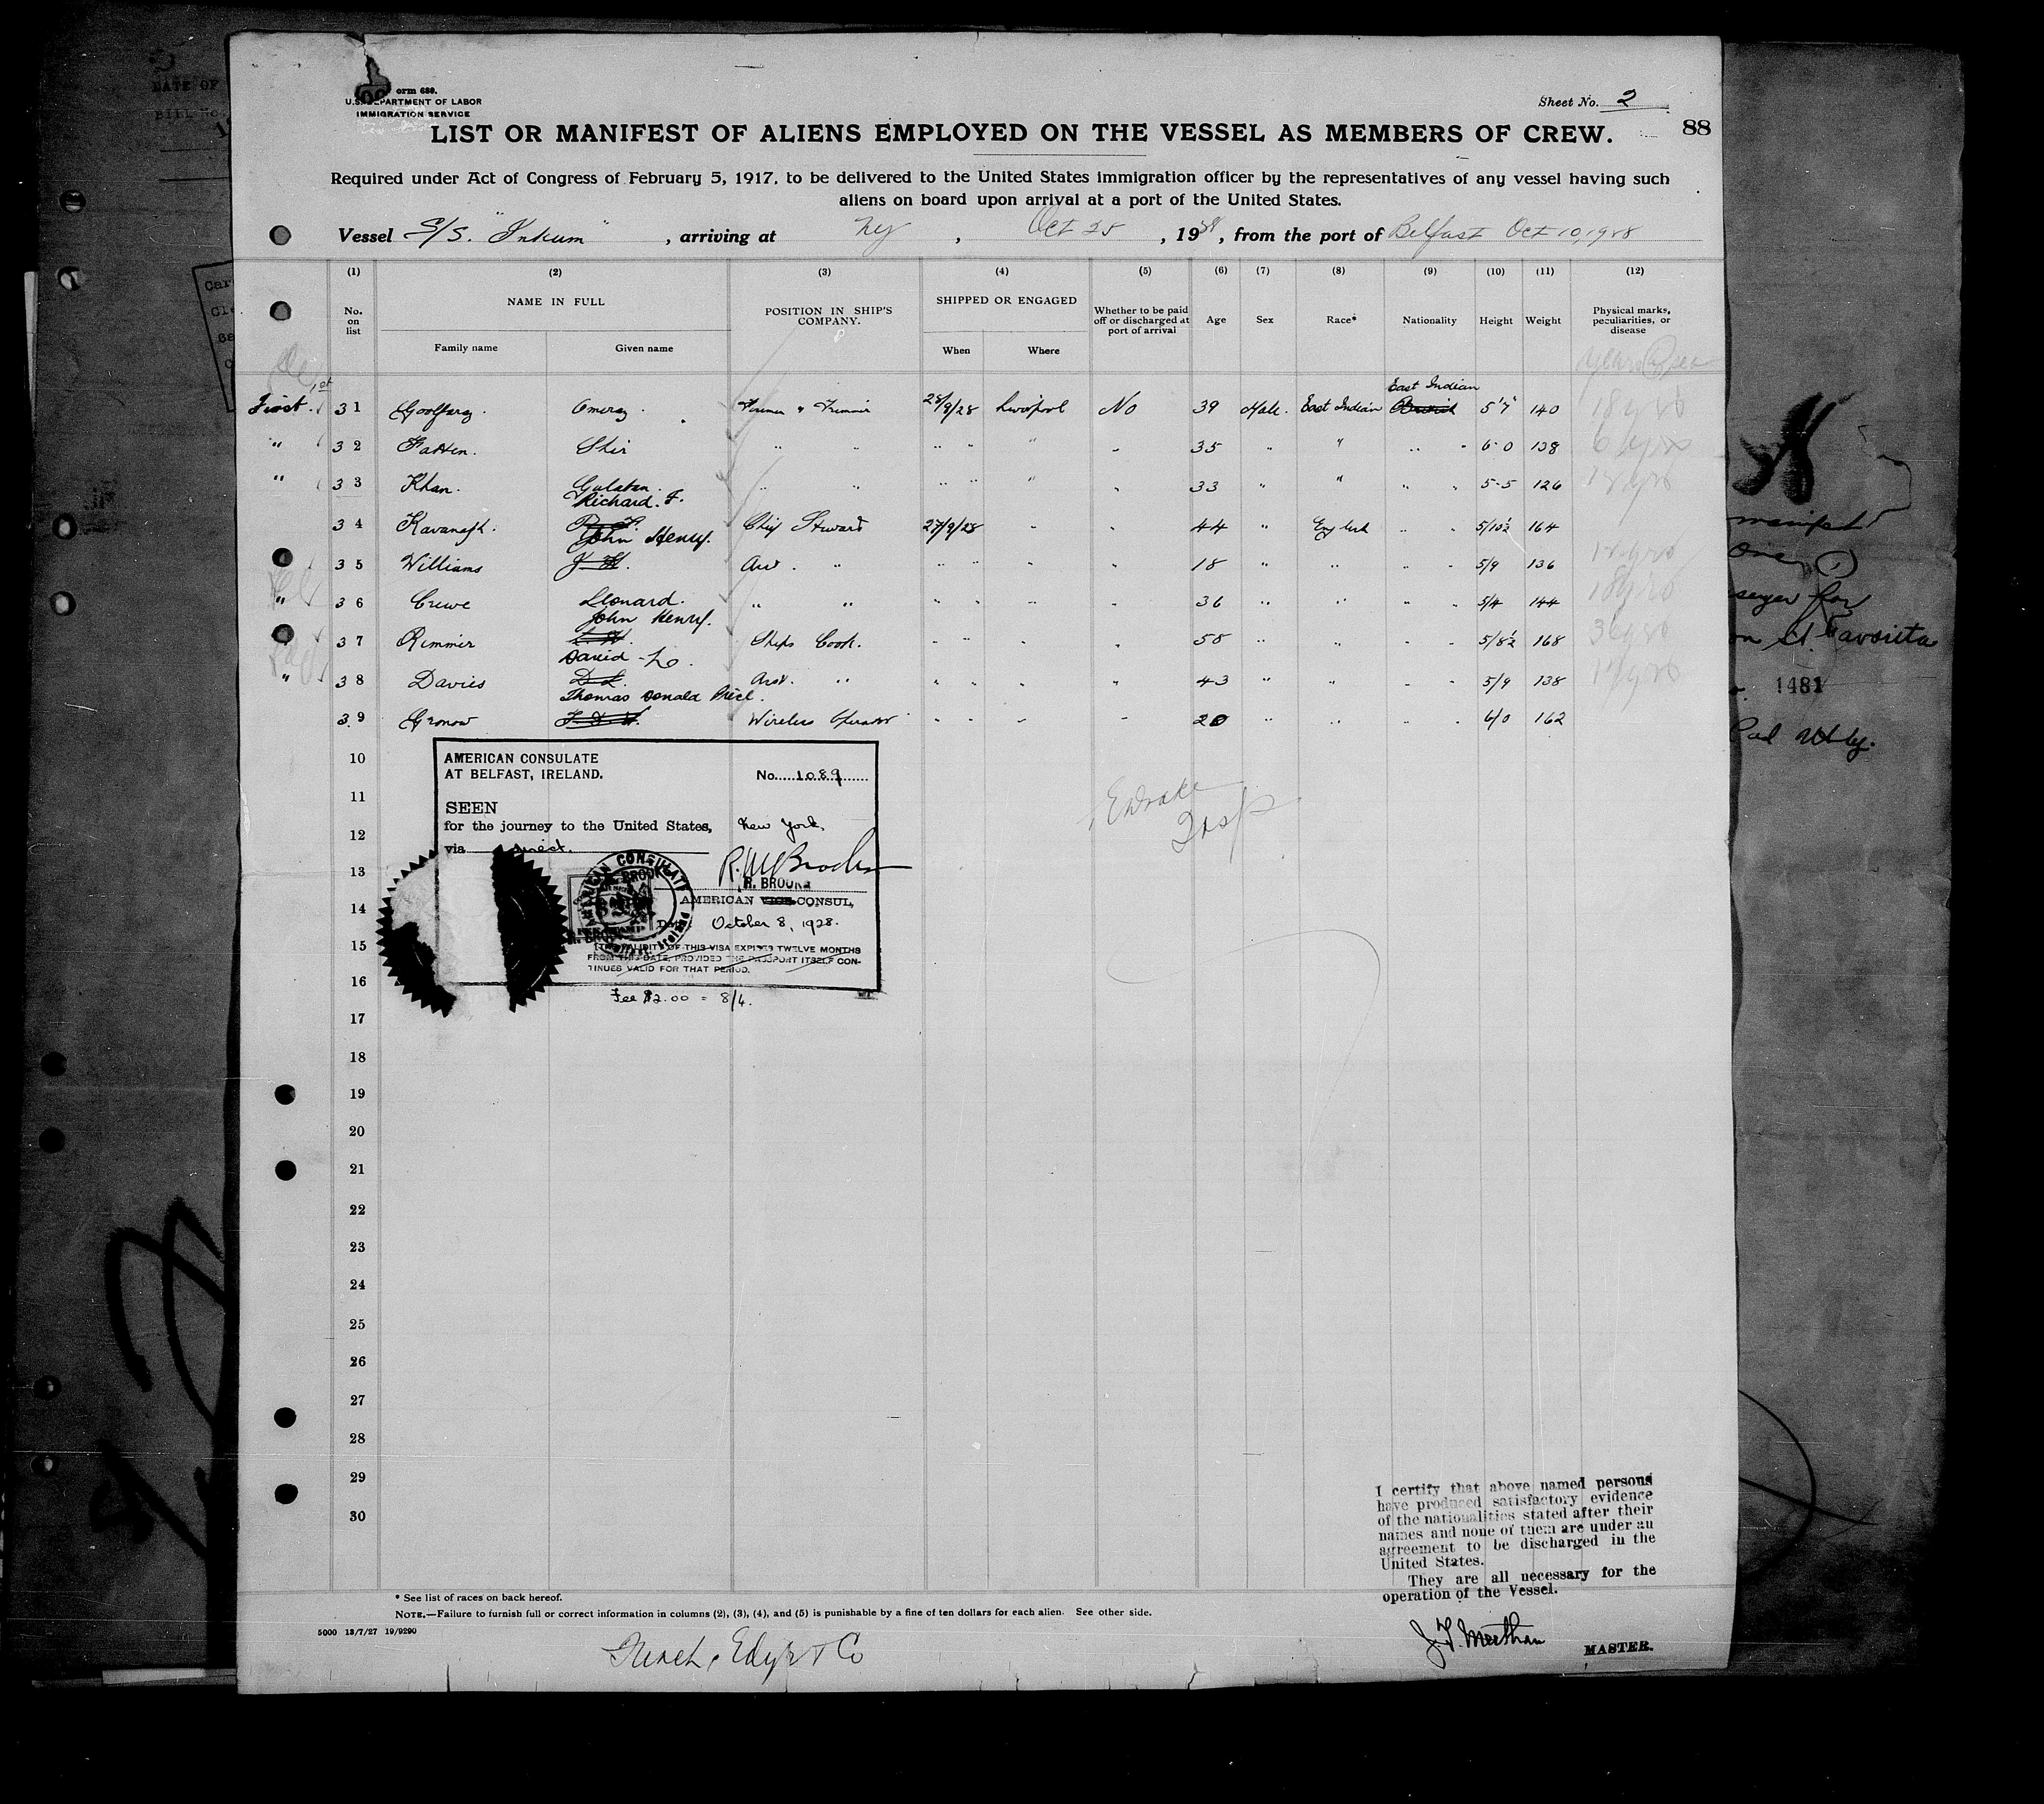 orm 680.
U.S. DEPARTMENT OF LABOR
IMMIGRATION SERVICE
Sheet No. 2
LIST OR MANIFEST OF ALIENS EMPLOYED ON THE VESSEL AS MEMBERS OF CREW.
88
Required under Act of Congress of February 5, 1917, to be delivered to the United States immigration officer by the representatives of any vessel having such
aliens on board upon arrival at a port of the United States.
Vessel S/S. "Inkum", arriving at NY, Oct 25, 1928, from the port of Belfast Oct 10, 1928
(1) (2) (3) (4) (5) (6) (7) (8) (9) (10) (11) (12)
No. on list
NAME IN FULL
Family name Given name
POSITION IN SHIP'S COMPANY.
SHIPPED OR ENGAGED
When Where
Whether to be paid off or discharged at port of arrival
Age Sex Race* Nationality Height Weight
Physical marks, peculiarities, or disease
1st
East Indian
First. 31 Omeraz. Fireman & Trimmer 28/9/28 Liverpool No 39 Male. East Indian British 5'7" 140 18 yrs
" 32 Shir " " " " " " 35 " " " " 6-0 138 6 yrs
" 33 Khan. Gulatan. " " " " " " 33 " " " " 5-5 126
Richard. F.
34 Kavanagh. R. F. Chief Steward 27/9/28 " " 44 " English " " 5/10½ 164
John Henry.
35 Williams J. H. Asst. " " " " " 18 " " " " 5/9 136
" 36 Crewe Leonard. " " " " " " 36 " " " " 5/4 144 18 yrs
John Henry.
37 Rimmer Ships Cook. " " " 58 " " " " 5/8½ 168
David -Lo.
" 38 Davies D L Asst. " " " " " 43 " " " " 5/9 138
Thomas Donald Precl.
39 Gronow Wireless Operator " " " " 20 " " " " 6/0 162
10
11
12
13
14
15
16
17
18
19
20
21
22
23
24
25
26
27
28
29
30
AMERICAN CONSULATE
AT BELFAST, IRELAND.
No. 1089
SEEN
for the journey to the United States, New York,
via direct.
R. BROOKS
AMERICAN VICE CONSUL,
Date: October 8, 1928.
THE VALIDITY OF THIS VISA EXPIRES TWELVE MONTHS
FROM THIS DATE, PROVIDED THE PASSPORT ITSELF CON-
TINUES VALID FOR THAT PERIOD.
Fee $2.00 = 8/4.
AMERICAN CONSULATE
E Drake
Insp
I certify that above named persons
have produced satisfactory evidence
of the nationalities stated after their
names and none of them are under an
agreement to be discharged in the
United States.
They are all necessary for the
operation of the Vessel.
J. F. Meethan
MASTER.
* See list of races on back hereof.
NOTE.—Failure to furnish full or correct information in columns (2), (3), (4), and (5) is punishable by a fine of ten dollars for each alien. See other side.
5000 13/7/27 19/9290
Edye & Co
DATE OF
BILL No.
manifest
One
for
1481